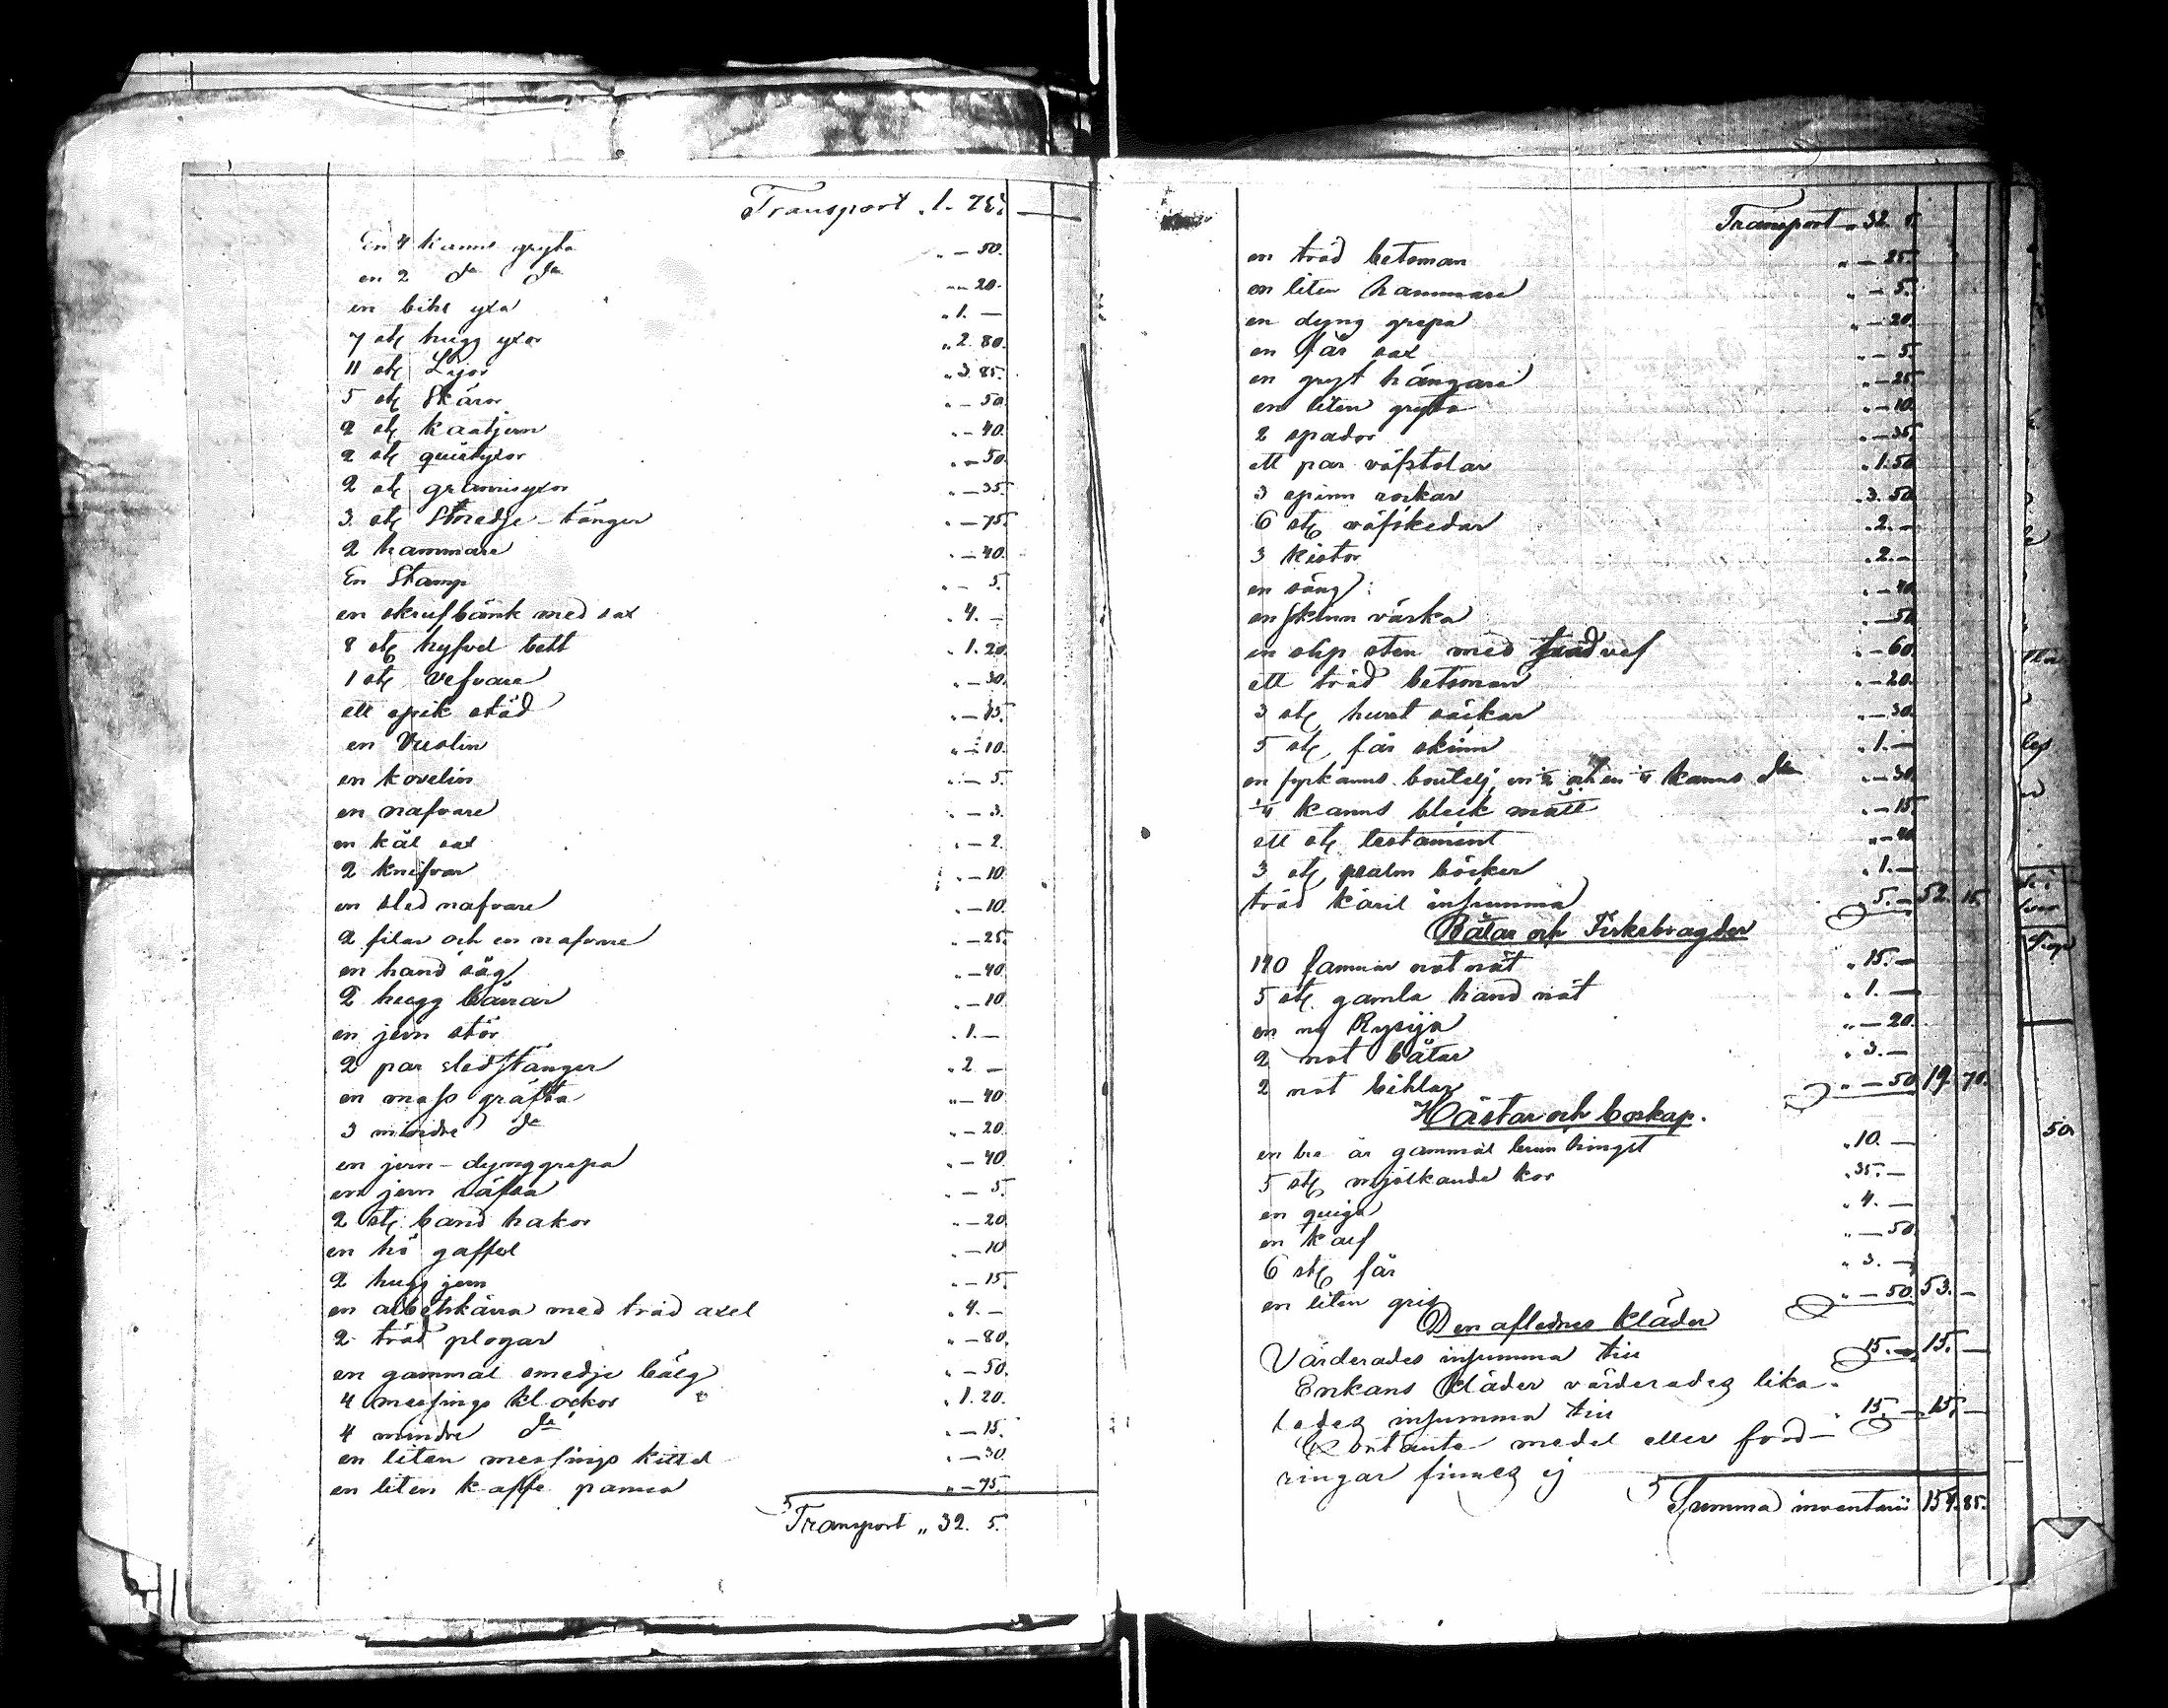 Transport „ 1. 75.
En 4 kanns gryta „ — 50.
en 2 do do „ — 20.
en bihl yxa „ 1. —
7 stç hugg yxor „ 2. 80.
11 stç Lijor „ 3. 85.
5 stç Skäror „ — 50.
2 stç kastjern „ — 40.
2 stç quistyxor „ — 50.
2 stç yxor „ — 35.
3 stç Smedje-tänger „ — 75.
2 hammare „ — 40.
En Stamp „ — 5.
en skrufbänk med sax „ 4. —
8 stç hyfvel bett „ 1. 20.
1 stç vefvare „ — 30.
ett spik städ „ — 15.
en „ — 10.
en „ — 5.
en nafvare „ — 3.
en kål sax „ — 2.
2 knifvar „ — 10.
en sled nafvare „ — 10.
2 filar och en nafvare „ — 25.
en hand såg „ — 40.
2 hugg bärrar „ — 10.
en jern stör „ 1. —
2 par sledstänger „ 2 —
en moss gräfta „ — 40.
3 mindre do „ — 20.
en jern-dynggrepa „ — 40.
en jern räfsa „ — 5.
2 stç band hakor „ — 20.
en hö gaffel „ — 10
2 hugg jern „ — 15.
en arbetskärra med träd axel „ 4. —
2 träd plogar „ — 80.
en gammal smedje bälg „ — 50.
4 messings klockor „ 1. 20.
4 mindre do „ — 15.
en liten messings kittel „ — 30
en liten kaffe panna „ — 75.
Transport „ 32. 5.
Transport „ 32. 5.
en träd betsman „ — 25.
en liten hammare „ — 5.
en dyng grepa „ — 20.
en får sax „ — 5.
en gryt hängare „ — 25
en liten gryta „ — 10.
2 spador „ — 35.
ett par väfstolar „ 1. 50
3 spinn rockar „ 3. 50
6 stç väfskedar „ 2. —
3 kistor „ 2. —
en säng „ — 40
en skinn väska „ — 50
en slip sten med vef „ — 60.
ett träd betsman „ — 20.
3 stç säckar „ — 30.
5 stç får skinn „ 1. —
en fyrkanns boutelj, en ½ och en ¼ kanns do „ — 30.
¼ kanns bleck mått „ — 15.
ett stç testament „ — 40
3 stç psalm böcker „ 1. —
träd käril insumma „ 5. — 52. 15.
Båtar och Fiskebragder
140 famnar not nät „ 15. —
5 stç gamla hand nät „ 1. —
en ny Rysija „ — 20.
2 not båtar „ 3. —
2 not „ — 50 19. 70.
Hästar och boskap.
en år gammal brun hingst „ 10. —
5 stç mjölkande kor „ 35. —
en quiga „ 4. —
en kalf „ — 50.
6 stç får „ 3. —
en liten gris „ — 50. 53. —
Den aflednes kläder
Värderades insumma till 15. — 15. —
Enkans kläder värderades lika-
ledes insumma till „ 15. — 15. —
Contanta medel eller ford-
ringar finnes ej
Summa inventarii 154. 85.
50